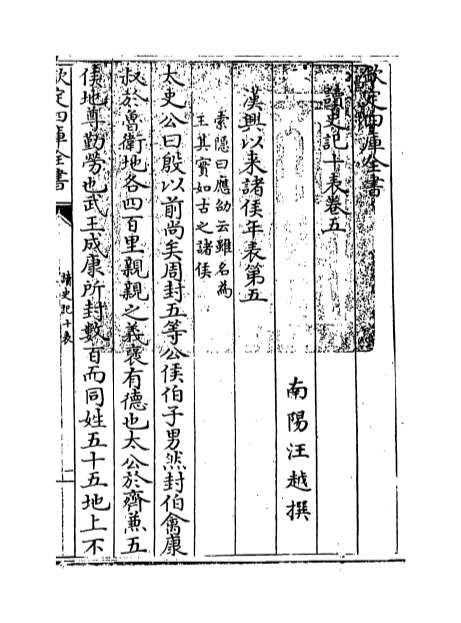 欽定四庫全書
讀史記十表卷五
南陽汪越撰
漢興以来諸侯年表第五
索隠曰應劭云雖名為
王其實如古之諸侯
太史公曰殷以前尚矣周封五等公侯伯子男然封伯禽康
叔於魯衛地各四百里親親之義襃有德也太公於齊兼五
侯地尊勤勞也武王成康所封數百而同姓五十五地上不
欽定四庫全書
讀史記十表
一